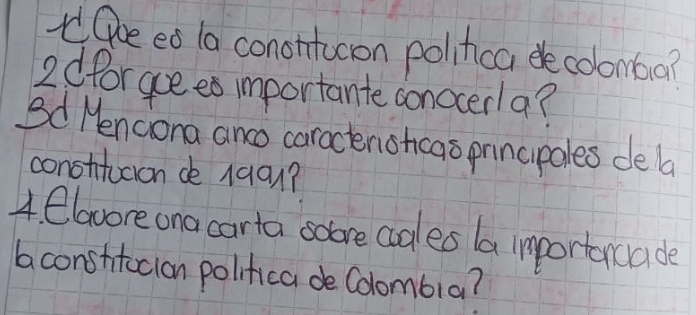 1¿Que es la constitucion politica de colombia?
2¿Por que es importante conocerla?
3¿Menciona cinco caracteristicas principales de la
constitucion de 1991?
4. Elavore una carta sobre cual es la importancia de
la constitucion politica de Colombia?